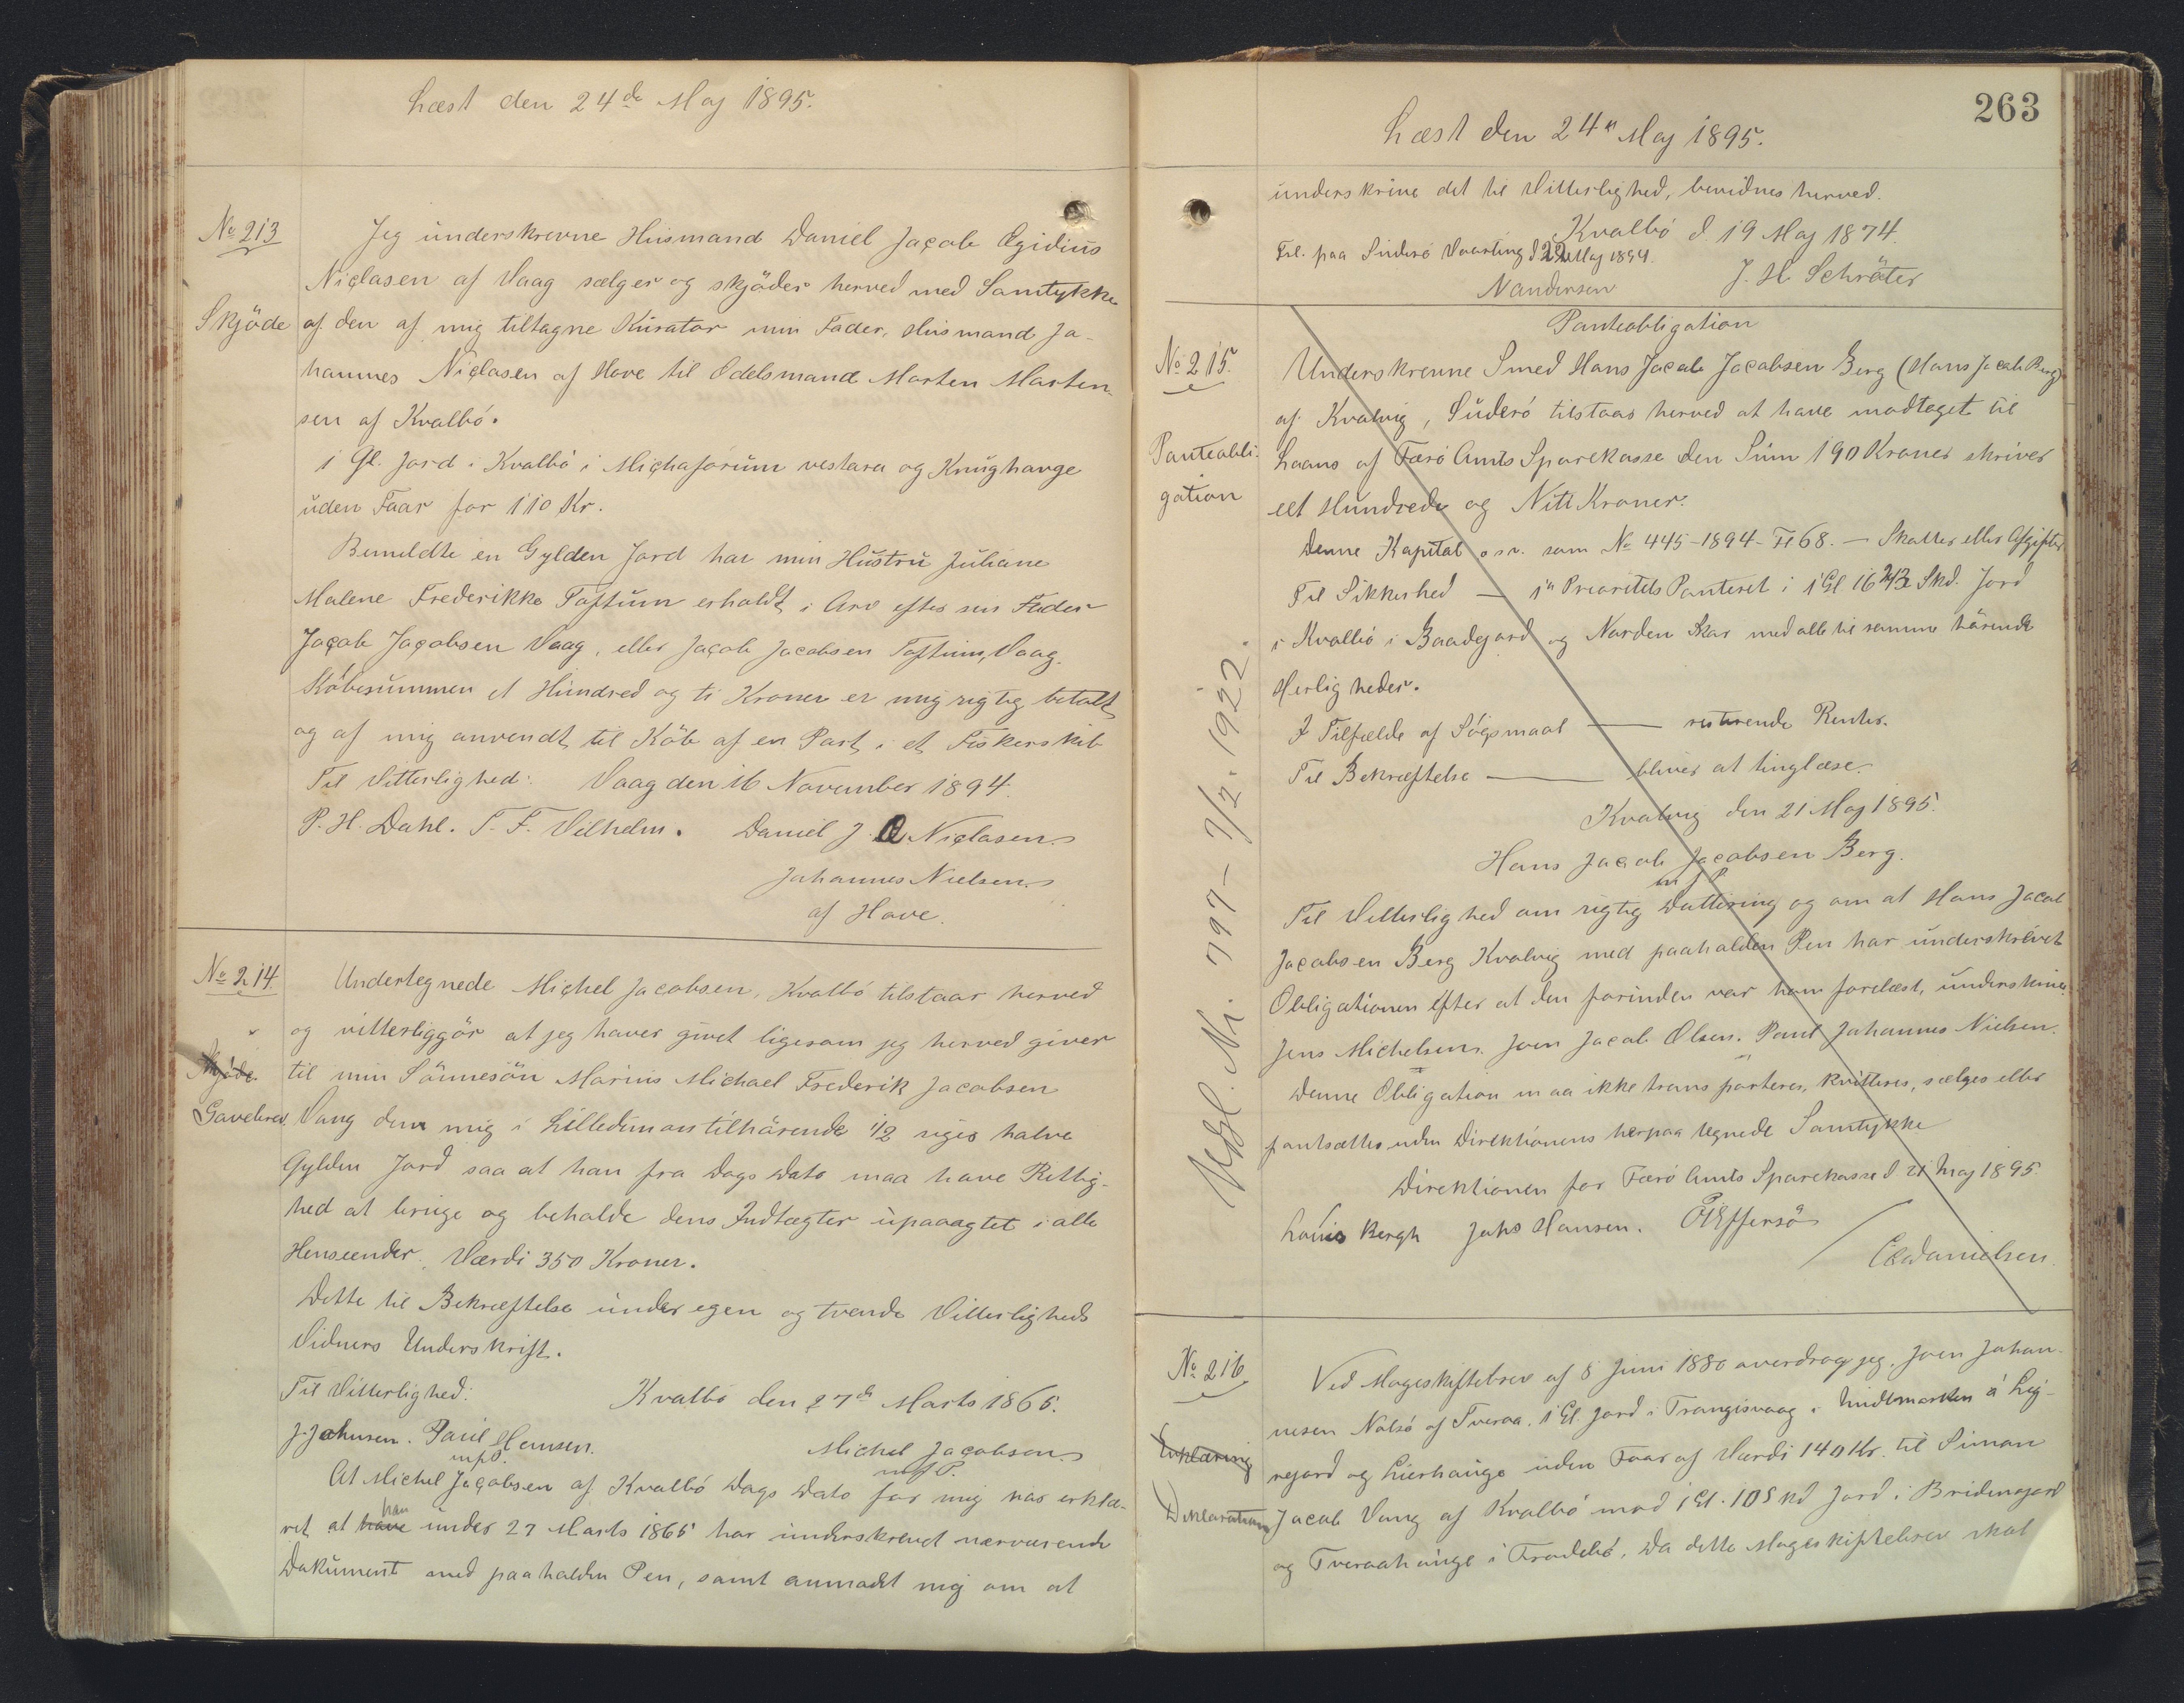 Læst den 24de Maj 1895.
No 213
Skjöde
Jeg underskrevne Husmand Daniel Jacob Ægidius
Niclasen af Vaag sælger og skjöder herved med Samtykke
af den af mig tiltagne Kurator min Fader, Husmand Jo-
hannes Niclasen af Hove til Odelsmand Morten Morten-
sen af Kvalbö.
1 Gl. Jord i Kvalbö i vestara og Knughauge
uden Faar for 110 Kr.
Bemeldte en Gylden Jord har min Hustru Juliane
Malene Frederikke Toftum erholdt i Arv efter sin Fader
Jacob Jacobsen Vaag, eller Jacob Jacobsen Toftum, Vaag.
Köbesummen et Hundred og ti Kroner er mig rigtig betalt
og af mig anvendt til Köb af en Part i et Fiskerskib
Til Vitterlighed: Vaag den 16 November 1894.
P. H. Dahl. T. F. Vilhelm. Daniel J. Æ. Niclasen
Johannes Nielsen
af Hove.
No 214.
Skjöde
Gavebrev
Undertegnede Michel Jacobsen, Kvalbö tilstaar herved
og vitterliggör at jeg haver givet ligesom jeg herved giver
til min Sönnesön Marius Michael Frederik Jacobsen
Vang den mig i Lilledimon tilhörende 1/2 siges halve
Gylden Jord saa at han fra Dags Dato maa have Rettig-
hed at bruge og beholde dens Indtægter upaaagtet i alle
Henseender. Værdi 350 Kroner.
Dette til Bekræftelse under egen og tvende Vitterligheds
Vidners Underskrift.
Til Vitterlighed: Kvalbö den 27de Marts 1865.
J. Johnsen. Paul Hansen. Michel Jacobsen
m f P. m f P.
At Michel Jacobsen af Kvalbö Dags Dato for mig har erklæ-
ret at have han under 27 Marts 1865 har underskrevet nærværende
Dokument med paaholden Pen, samt anmodet mig om at
263
Læst den 24de Maj 1895.
underskrive det til Vitterlighed, bevidnes herved.
Kvalbö d 19 Maj 1874.
Frl. paa Suderö Vaarting d 22 Maj 1894.
J. H. Schröter
N Andersen
No 215.
Panteobli-
gation
Panteobligation
Underskrevne Smed Hans Jacob Jacobsen Berg (Hans Jacob Berg)
af Kvalvig, Suderö tilstaar herved at have modtaget til
Laans af Færö Amts Sparekasse den Sum 190 Kroner skriver
eet Hundrede og Niti Kroner.
Denne Kapital o s v. som No 445-1894-Fl 68. — Skatter eller Afgifter
Til Sikkerhed — 1ste Prioritets Panteret i 1 Gl 16 2/3 Skd. Jord
i Kvalbö i Baadgjord og Norden Skar med alle til samme hörende
Herligheder.
I Tilfælde af Sögsmaal — resterende Renter.
Til Bekræftelse — bliver at tinglæse.
Kvalvig den 21 Maj 1895.
Hans Jacob Jacobsen Berg.
m f P
Til Vitterlighed om rigtig Dattering og om at Hans Jacob
Jacobsen Berg Kvalvig med paaholden Pen har underskrevet
Obligationen efter at den forinden var ham forelæst, underskrives
Jens Michelsen. Joen Jacob Olsen. Poul Johannes Nielsen.
Denne Obligation maa ikke transporteres, kvitteres, sælges eller
pantsættes uden Direktionens herpaa tegnede Samtykke
Direktionen for Færö Amts Sparekasse d 21 Maj 1895.
Louis Bergh Johs Hansen. P Effersö
Danielsen
Udsl. Nr. 797 - 7/2. 1922.
No 216
Erklæring
Deklaration
Ved Mageskiftebrev af 8 Juni 1880 overdrog jeg, Joen Johan-
nesen Nolsö af Tveraa. 1 Gl. Jord i Trangisvaag i Lig-
nejord og Lierhauge uden Faar af Værdi 140 Kr. til Simon
Jacob Vang af Kvalbö mod 1 Gl. 10 Skd Jord i
og Tveraahauge i Frodebö. Da dette Mageskiftebrev skal